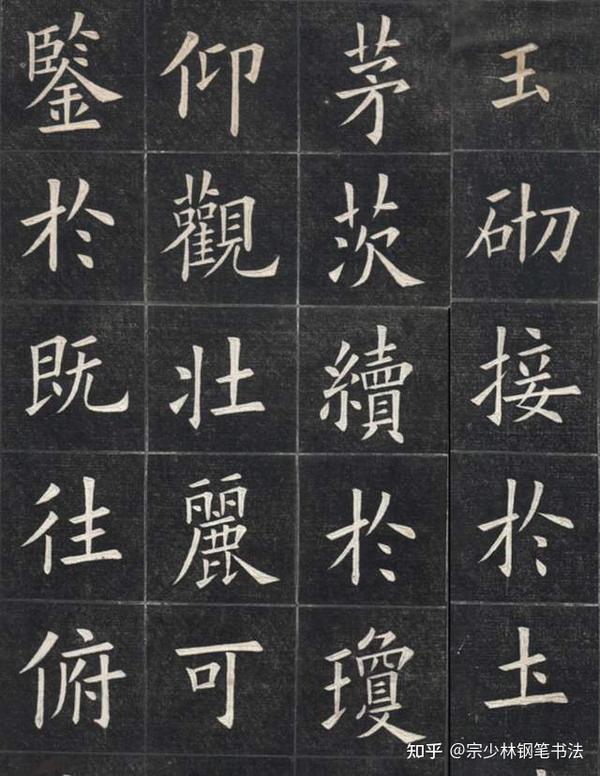 玉砌接於土
茅茨續於瓊
仰觀壯麗可
鑒於既往俯
知乎 @宗少林钢笔书法